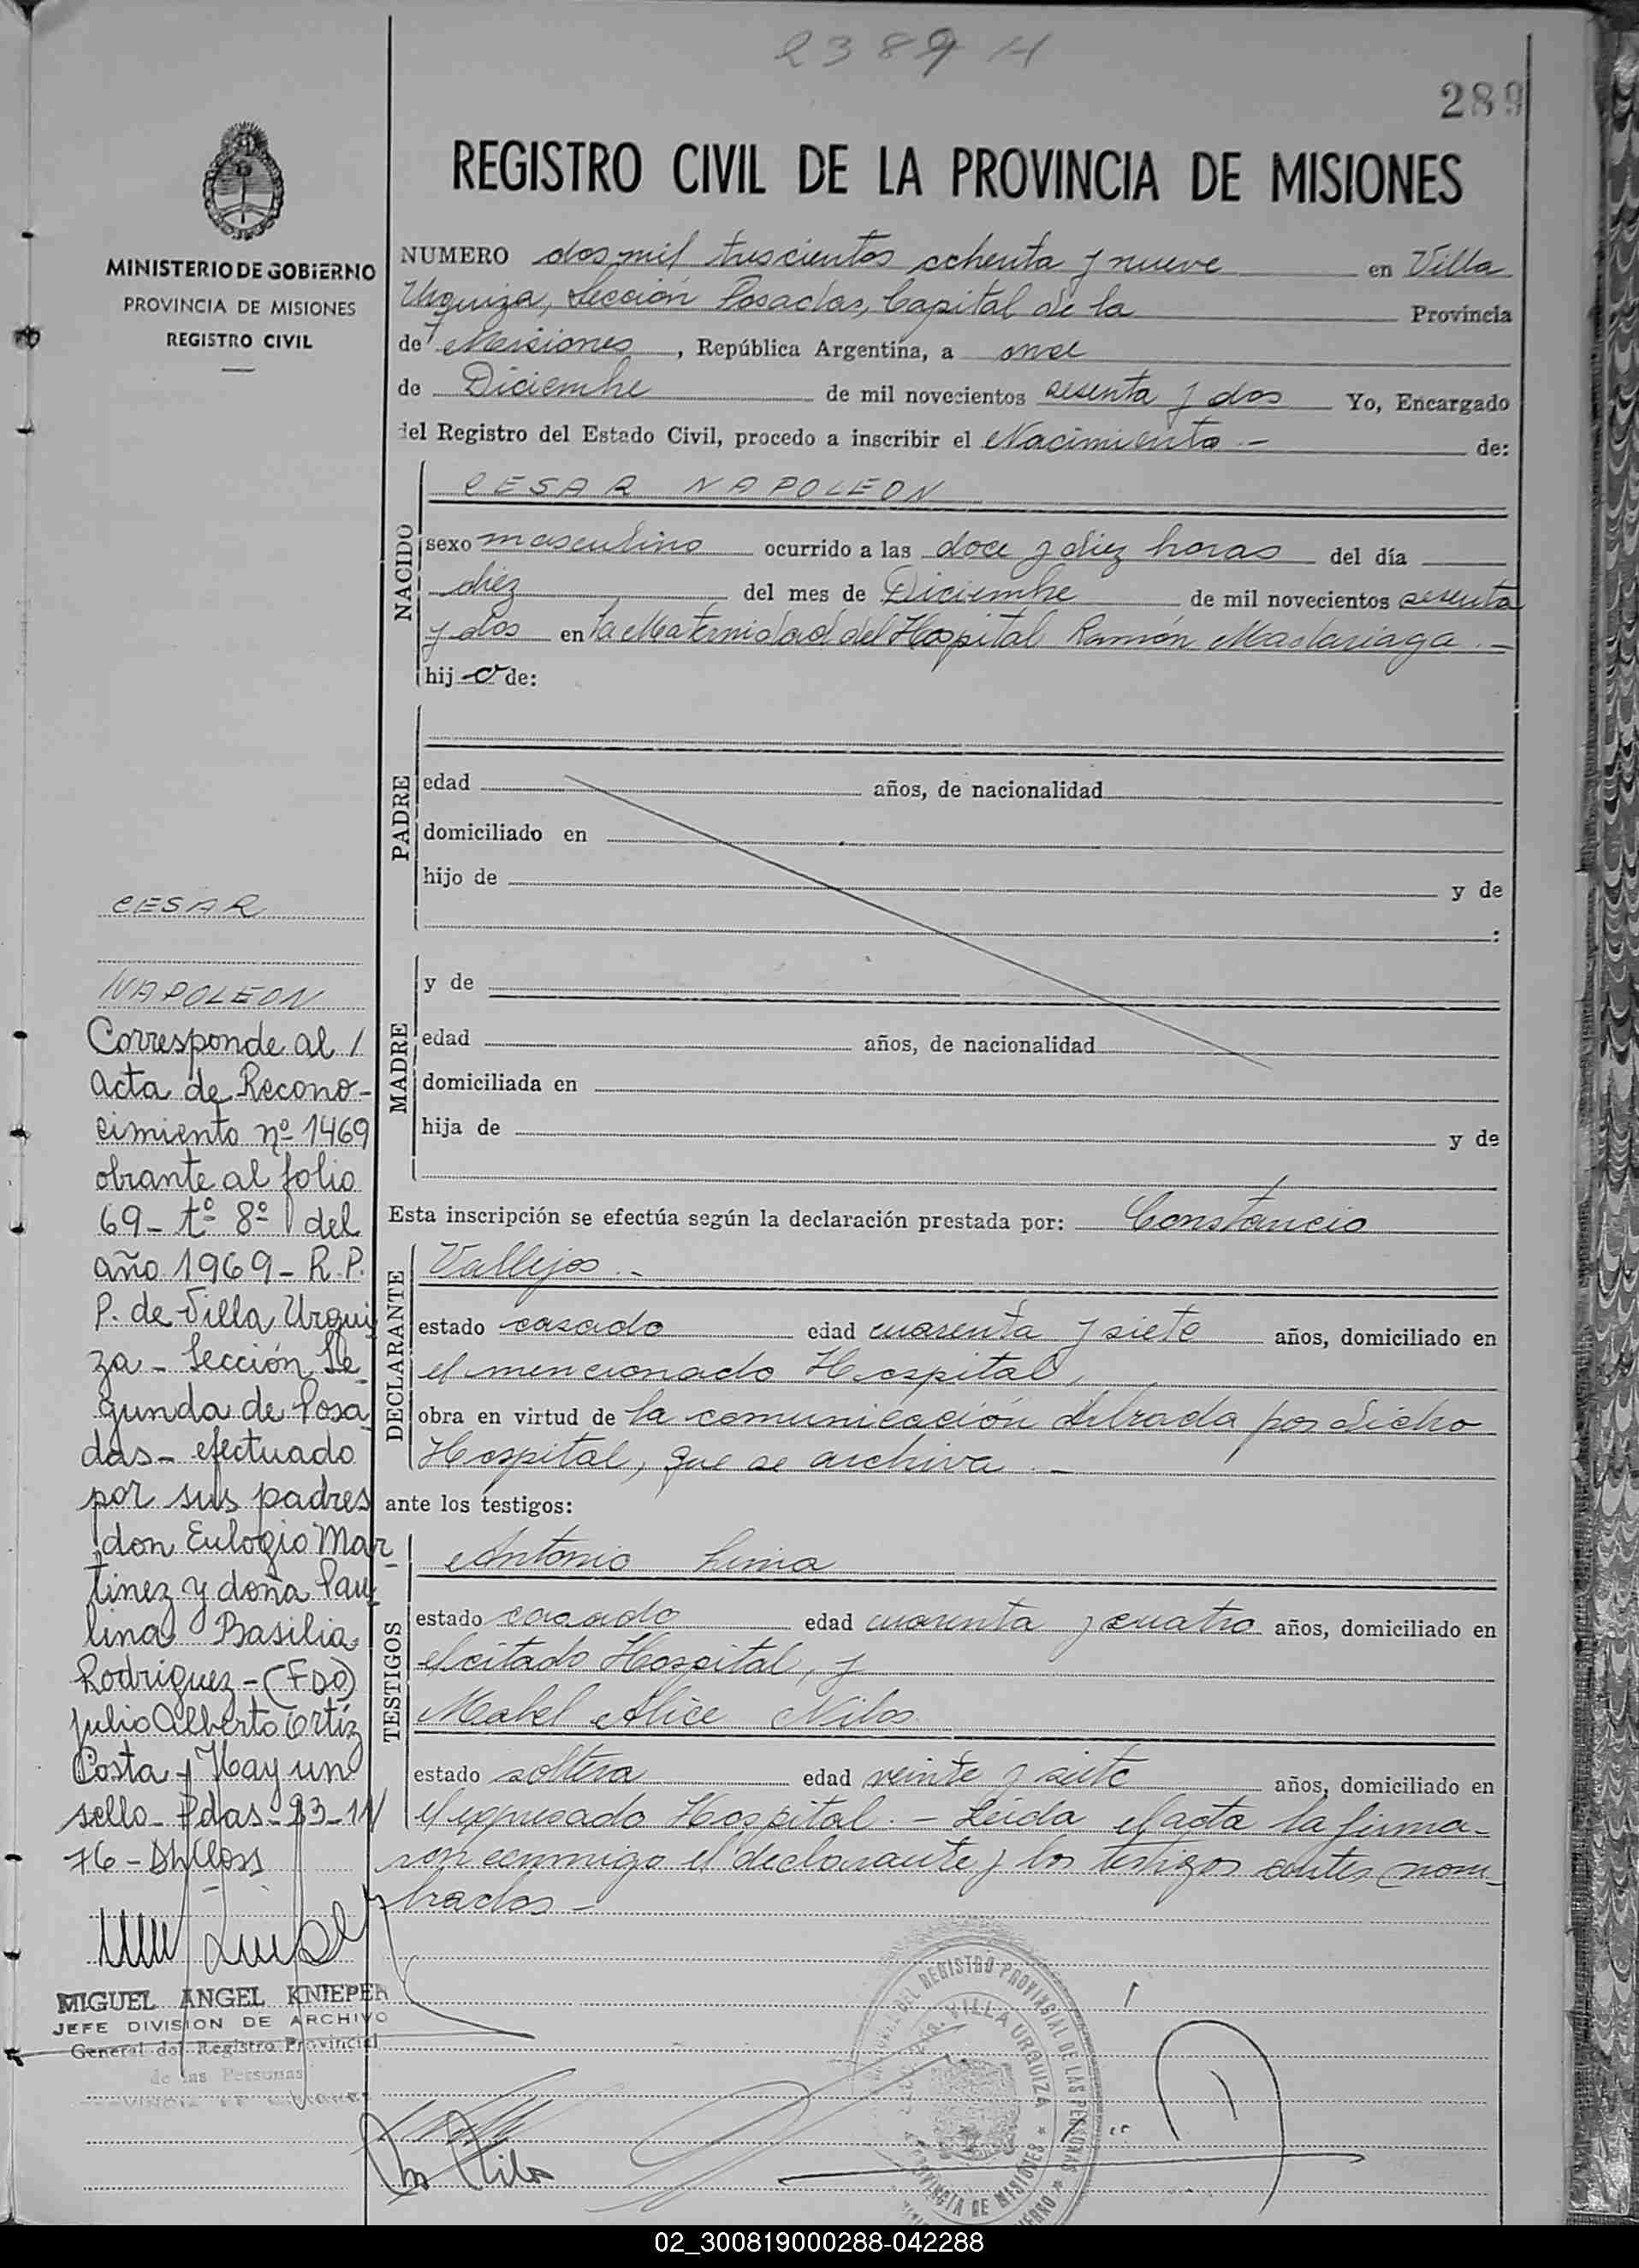 2389 H
289
REGISTRO CIVIL DE LA PROVINCIA DE MISIONES
MINISTERIO DE GOBIERNO
PROVINCIA DE MISIONES
REGISTRO CIVIL
NUMERO dos mil trescientos ochenta y nueve en Villa
Urquiza, Sección Posadas, Capital de la Provincia
de Misiones, República Argentina, a once
de Diciembre de mil novecientos sesenta y dos Yo, Encargado
del Registro del Estado Civil, procedo a inscribir el Nacimiento.- de:
NACIDO
CESAR NAPOLEON
sexo masculino ocurrido a las doce y diez horas del día
diez del mes de Diciembre de mil novecientos sesenta
y dos en la Maternidad del Hospital Ramón Madariaga.-
hij o de:
PADRE
edad años, de nacionalidad
domiciliado en
hijo de y de
:
MADRE
y de
edad años, de nacionalidad
domiciliada en
hija de y de
Esta inscripción se efectúa según la declaración prestada por: Constancio
DECLARANTE
Vallejos.-
estado casado edad cuarenta y siete años, domiciliado en
el mencionado Hospital,
obra en virtud de la comunicación librada por dicho
Hospital, que se archiva.-
ante los testigos:
TESTIGOS
Antonio Lima
estado casado edad cuarenta y cuatro años, domiciliado en
el citado Hospital, y
Mabel Alice Nilos
estado soltera edad veinte y siete años, domiciliado en
el expresado Hospital.- Leída el acta la firma-
ron conmigo el declarante y los testigos antes nom-
brados-
CESAR
NAPOLEON
Corresponde al /
acta de Recono-
cimiento nº 1469
obrante al folio
69- tº 8º del
año 1969- R.P.
P. de Villa Urqui
za- Sección Se
gunda de Posa
das- efectuado
por sus padres
don Eulogio Mar-
tinez y doña Pau
lina Basilia
Rodriguez-(FDO)
Julio Alberto Ortíz
Costa- Hay un
sello- Pdas-23-11
76-
MIGUEL ANGEL KNIEPER
JEFE DIVISION DE ARCHIVO
General del Registro Provincial
de las Personas
DEL REGISTRO PROVINCIAL DE LAS PERSONAS
VILLA URQUIZA
PROVINCIA DE MISIONES
02_300819000288-042288